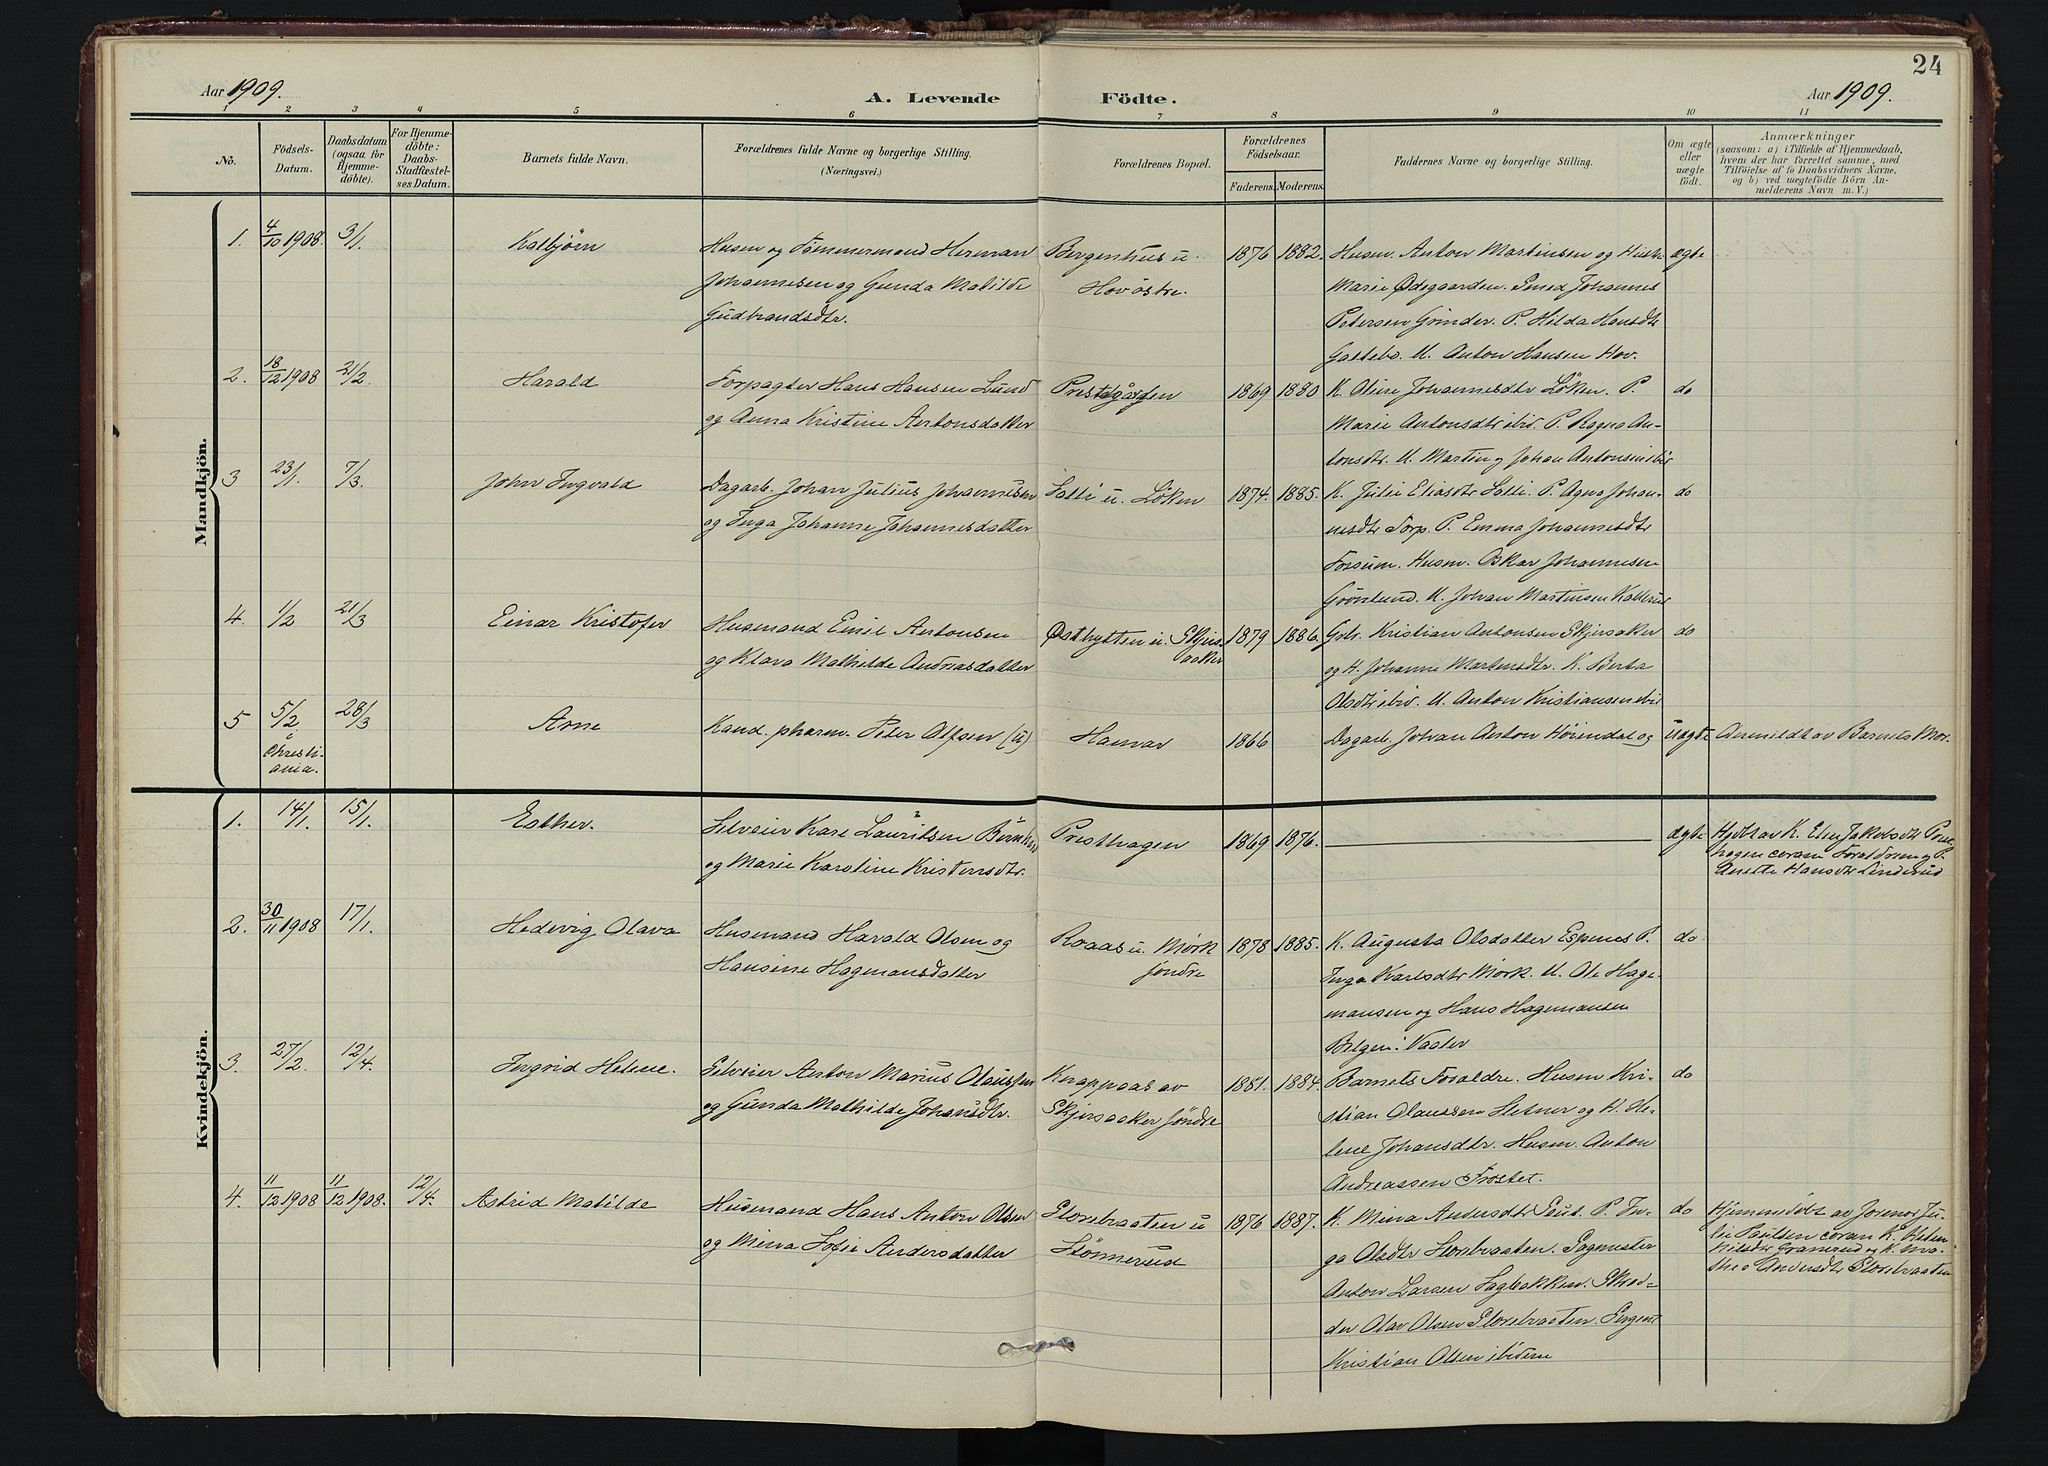 24
Aar 1909.
A. Levende Födte.
Aar 1909.
1 2 3 4 5 6 7 8 9 10 11
No.
Födsels-
Datum.
Daabsdatum
(ogsaa for
Hjemme-
döbte).
For Hjemme-
döbte:
Daabs-
Stadfæstel-
ses Datum.
Barnets fulde Navn.
Forældrenes fulde Navne og borgerlige Stilling.
(Næringsvei.)
Forældrenes Bopæl.
Forældrenes
Födselsaar.
Faderens. Moderens.
Faddernes Navne og borgerlige Stilling.
Om ægte
eller
uægte
födt.
Anmærkninger
(saasom: a) i Tilfælde af Hjemmedaab,
hvem der har forrettet samme, med
Tilföielse af to Daabsvidners Navne,
og b) ved uægtefödte Börn An-
melderens Navn m. V.)
Mandkjön.
1. 4/10 1908. 3/1.
Kolbjörn
Husm og Tømmermand Herman
Johannesen og Gunda Matilde
Gudbrandsdtr.
Bergenhus u.
Hov østre.
1876 1882.
Husm. Anton Martinsen og Hustr
Marie Ødegaarden. Smed Johannes
Petersen Grinder. P. Hilda Hansdtr
U. Anton Hansen Hov.
ægte
2. 18/12 1908 21/2.
Harald
Forpagter Hans Hansen Lund
og Anna Kristine Antonsdatter
1869 1880
K. Oline Johannesdtr Löken. P.
Marie Antonsdtr ibid. P. Ragna An-
tonsdtr. U. Martin og Johan Antonsen ibid
do
3 23/1. 7/3.
John Ingvald
Dagarb. Johan Julius Johannesen
og Inga Johanne Johannesdatter
u. Löken
1874. 1885.
K. Julie Eliasdtr P. Agna Johan-
nesdtr Torp. P. Emma Johannesdtr
Husm. Oskar Johannesen
Grönlund. U. Johan Martinsen
do
4. 1/2 21/3
Einar Kristofer
Husmand Emil Antonsen
og Klara Mathilde Andreasdatter
Østhytten u. Skjers-
aaker
1879 1886.
Grbr. Kristian Antonsen Skjersaker
og H. Johanne Martinsdtr. K. Berta
Olsdtr ibid. U. Anton Kristiansen ibid
do
5 5/2 28/3
i
Christi-
ania.
Arne
Kand. pharm. Peter Olsen (u)
Hamar
1866
Dagarb. Johan Anton Høiendal og
uægte
Anmeldt av Barnets Mor.
Kvindekjön.
1. 14/1. 15/1.
Esther.
Selveier Karl Lauritsen
og Marie Karoline Kristensdtr.
Presthagen
1869 1876.
ægte
Hjdbt av K. Elen Jakobsdtr Prest-
hagen coram Foraldrene og P.
Anette Hansdtr Linderud
2. 30/11 1908 17/1.
Hedevig Olava
Husmand Harald Olsen og
Hansine Hagmansdatter
Roaas u. Mørk
söndre
1878 1885.
K. Augusta Olsdatter Espenes P.
Inga Karlsdtr Mörk. U. Ole Hage-
mansen og Hans Hagemansen
do
3. 27/2. 12/4.
Ingrid Helene.
Selveier Anton Marius Olaussen
og Gunda Mathilde Johansdtr.
Knappaas av
Skjersaaker söndre
1881. 1884.
Barnets Foraldre. Husm Kri-
stian Olaussen og H. He-
lene Johansdtr. Husm. Anton
Andreassen
do
4. 11/12 1908 11/12 1908. 12/4.
Astrid Matilde
Husmand Hans Anton Olsen
og Mina Sofie Andersdatter
Storebraaten u
Stömmerud
1876 1887.
K. Mina Andersdtr P. In-
ga Olsdtr Storebraaten. Sagmester
Anton Larsen Sagbakken. Skræd-
der Olav Olsen Storebraaten.
Kristian Olsen ibidem
do
Hjemmedöbt av Jormor Ju-
lie Paulsen coram K.
Gramrud og K.
Andersdtr Storebraaten